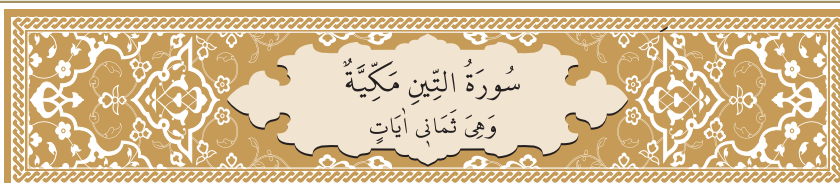 سُورَةُ التّ۪ينِ مَكِّيَّةٌ
وَهِيَ ثَمَان۪ي اٰيَاتٍ